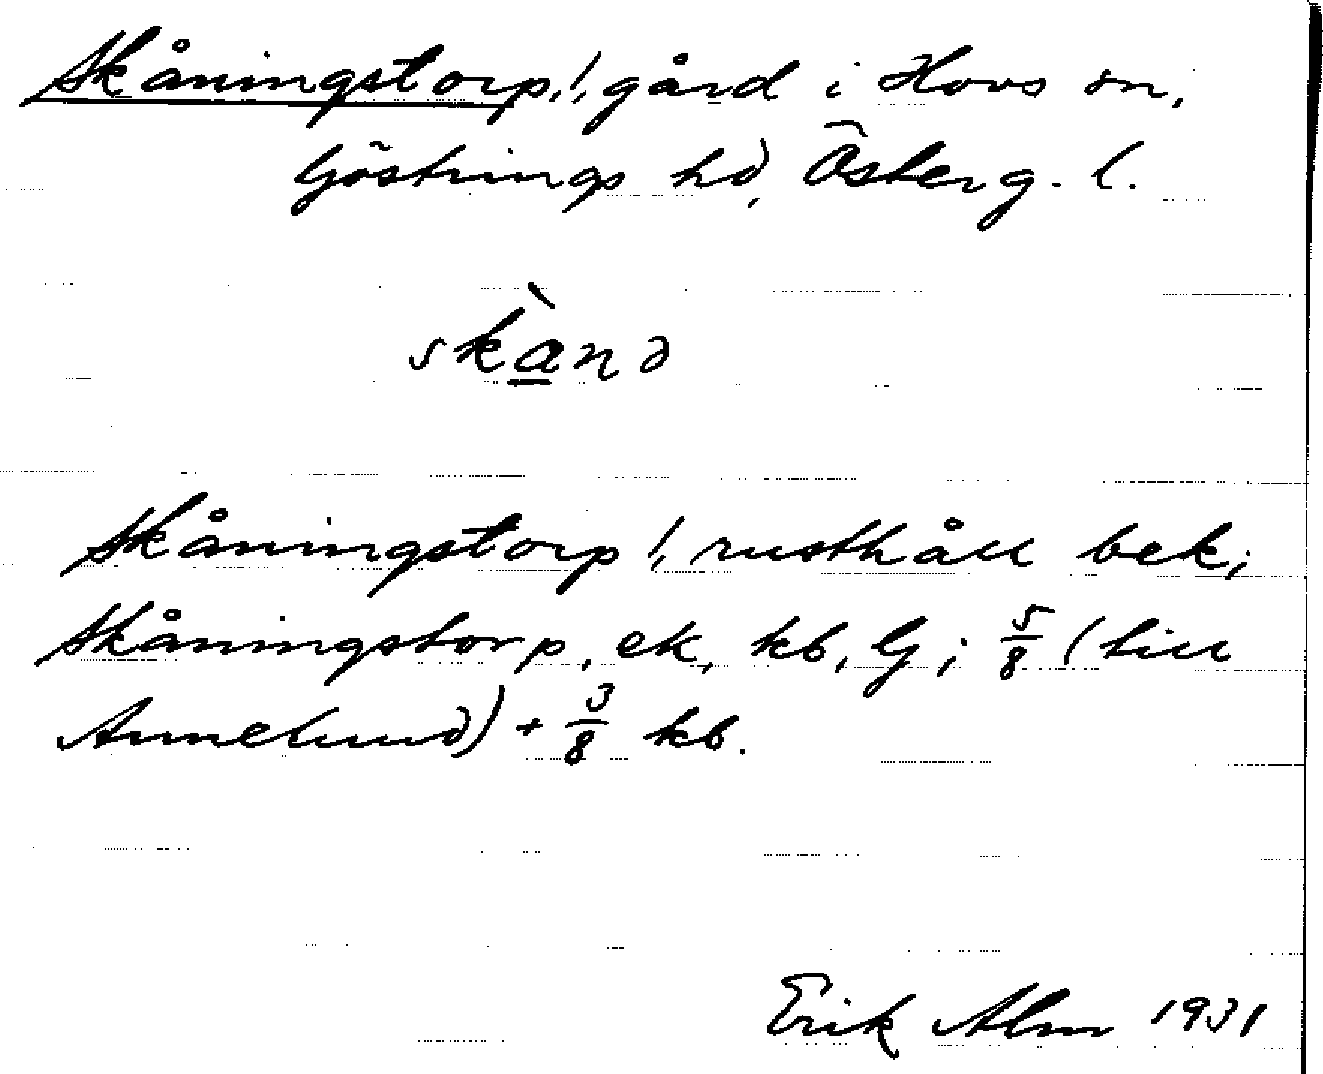 Skåningstorp, !, gård i Hovs sn,
Göstrings hd, Österg. l.
skànə
Skåningstorp !, rusthåll bek;
Skåningstorp, ek, kb, G; 5/8 (till
Annelund) + 3/8 kb.
Erik Alm 1931